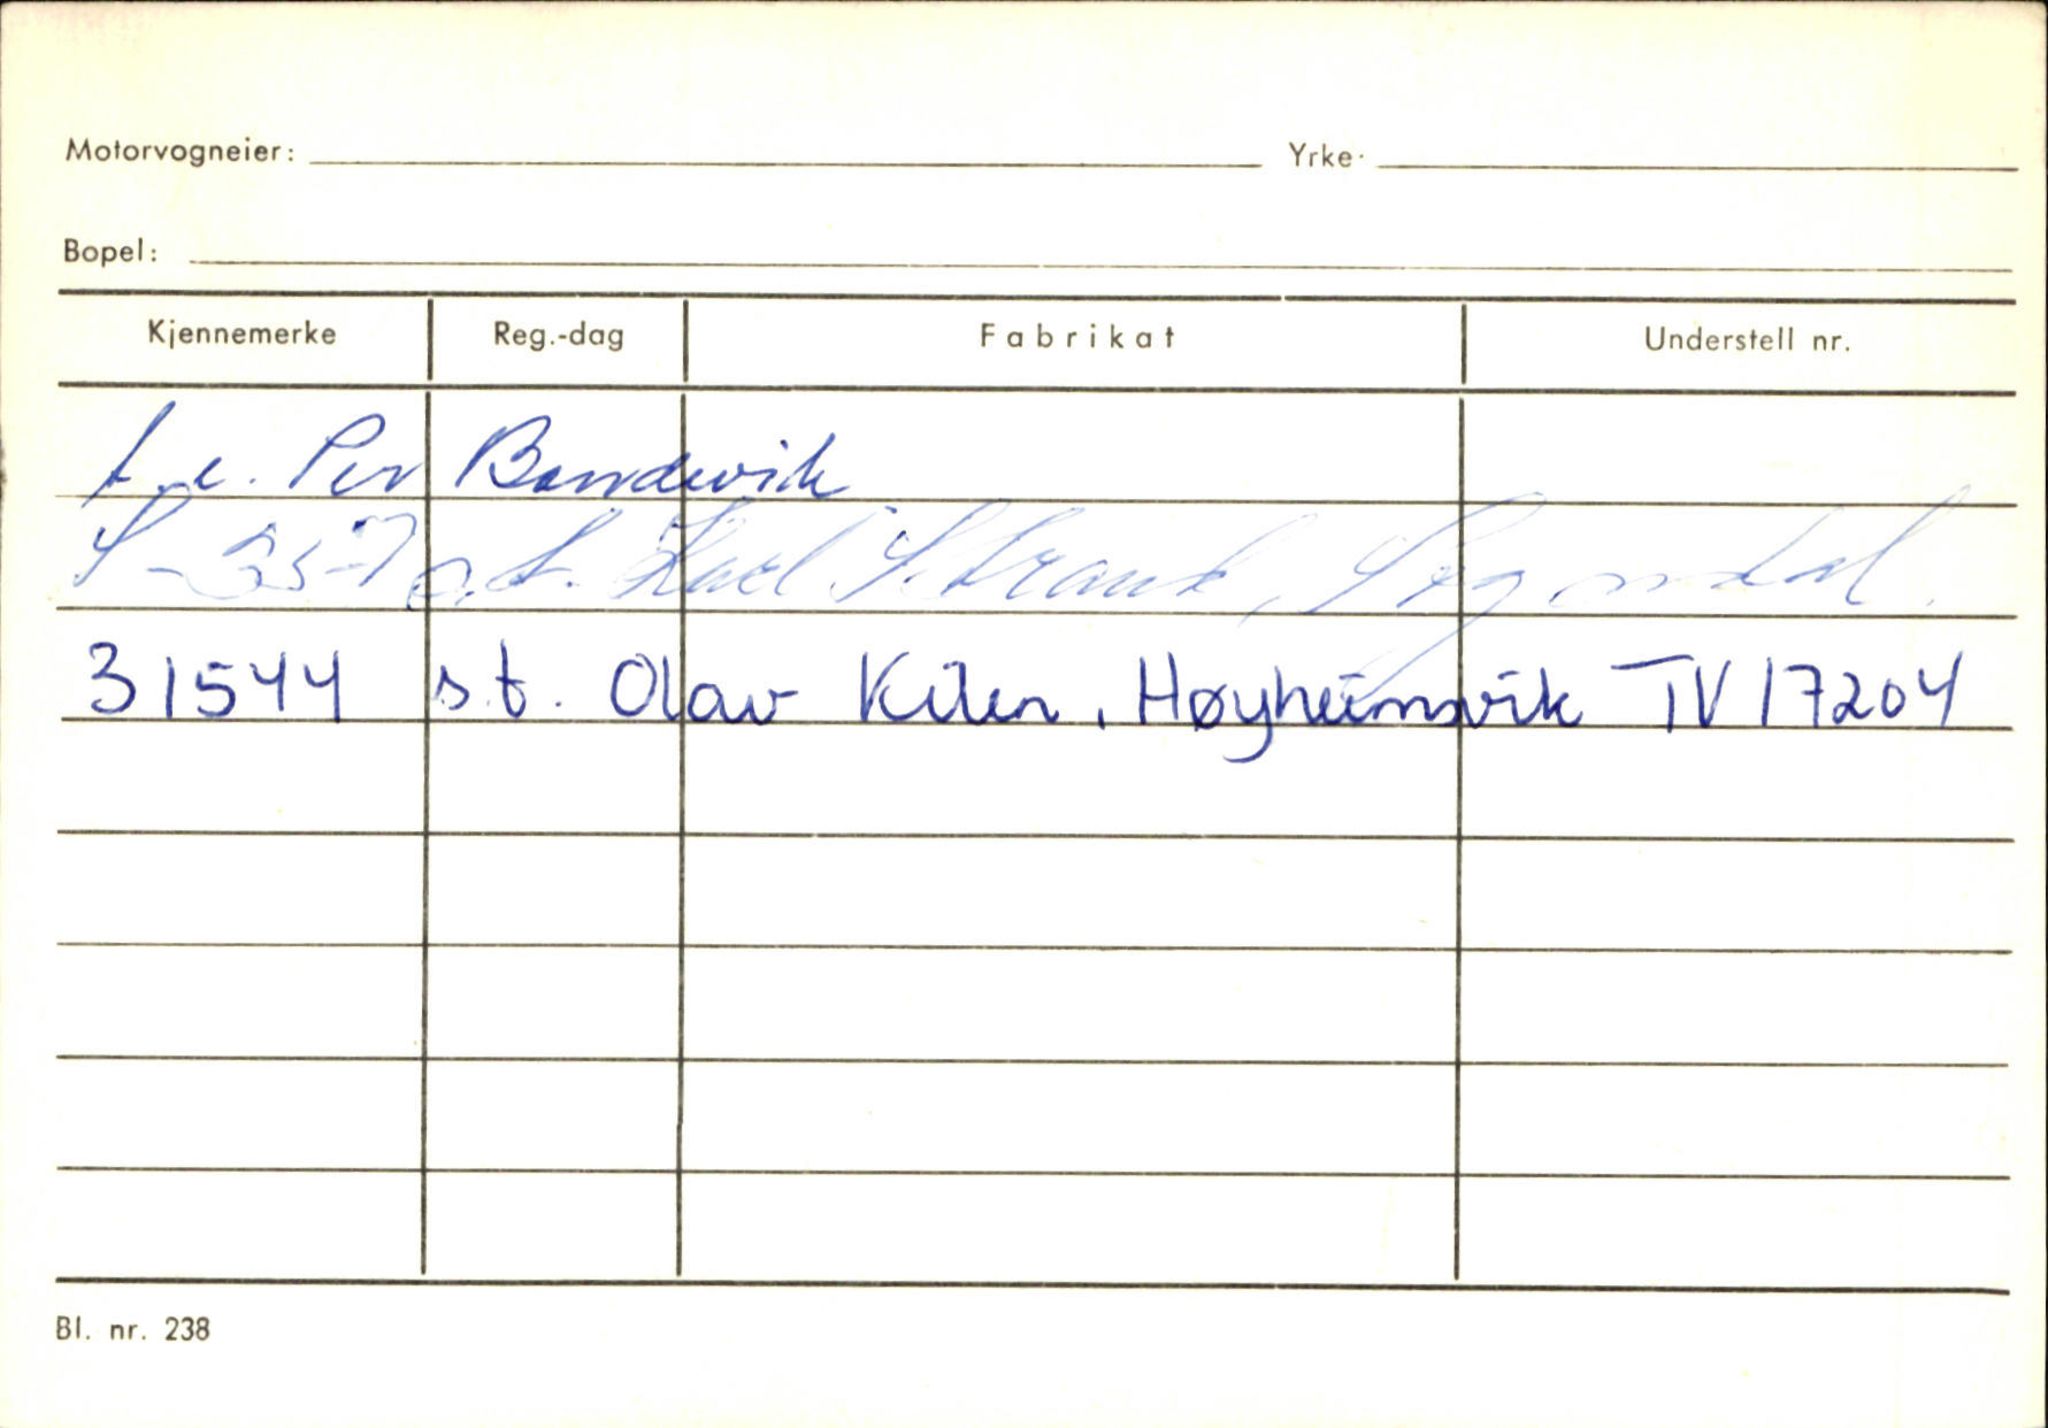 Motorvogneier: Yrke.
Bopel:
Kjennemerke Reg.-dag Fabrikat Understell nr.
t.e. Per Bondevik
S- s.t. Karl Strand, Sogndal.
31544 s.t. Olav Kilen, Høyheimsvik TV 17204
Bl. nr. 238